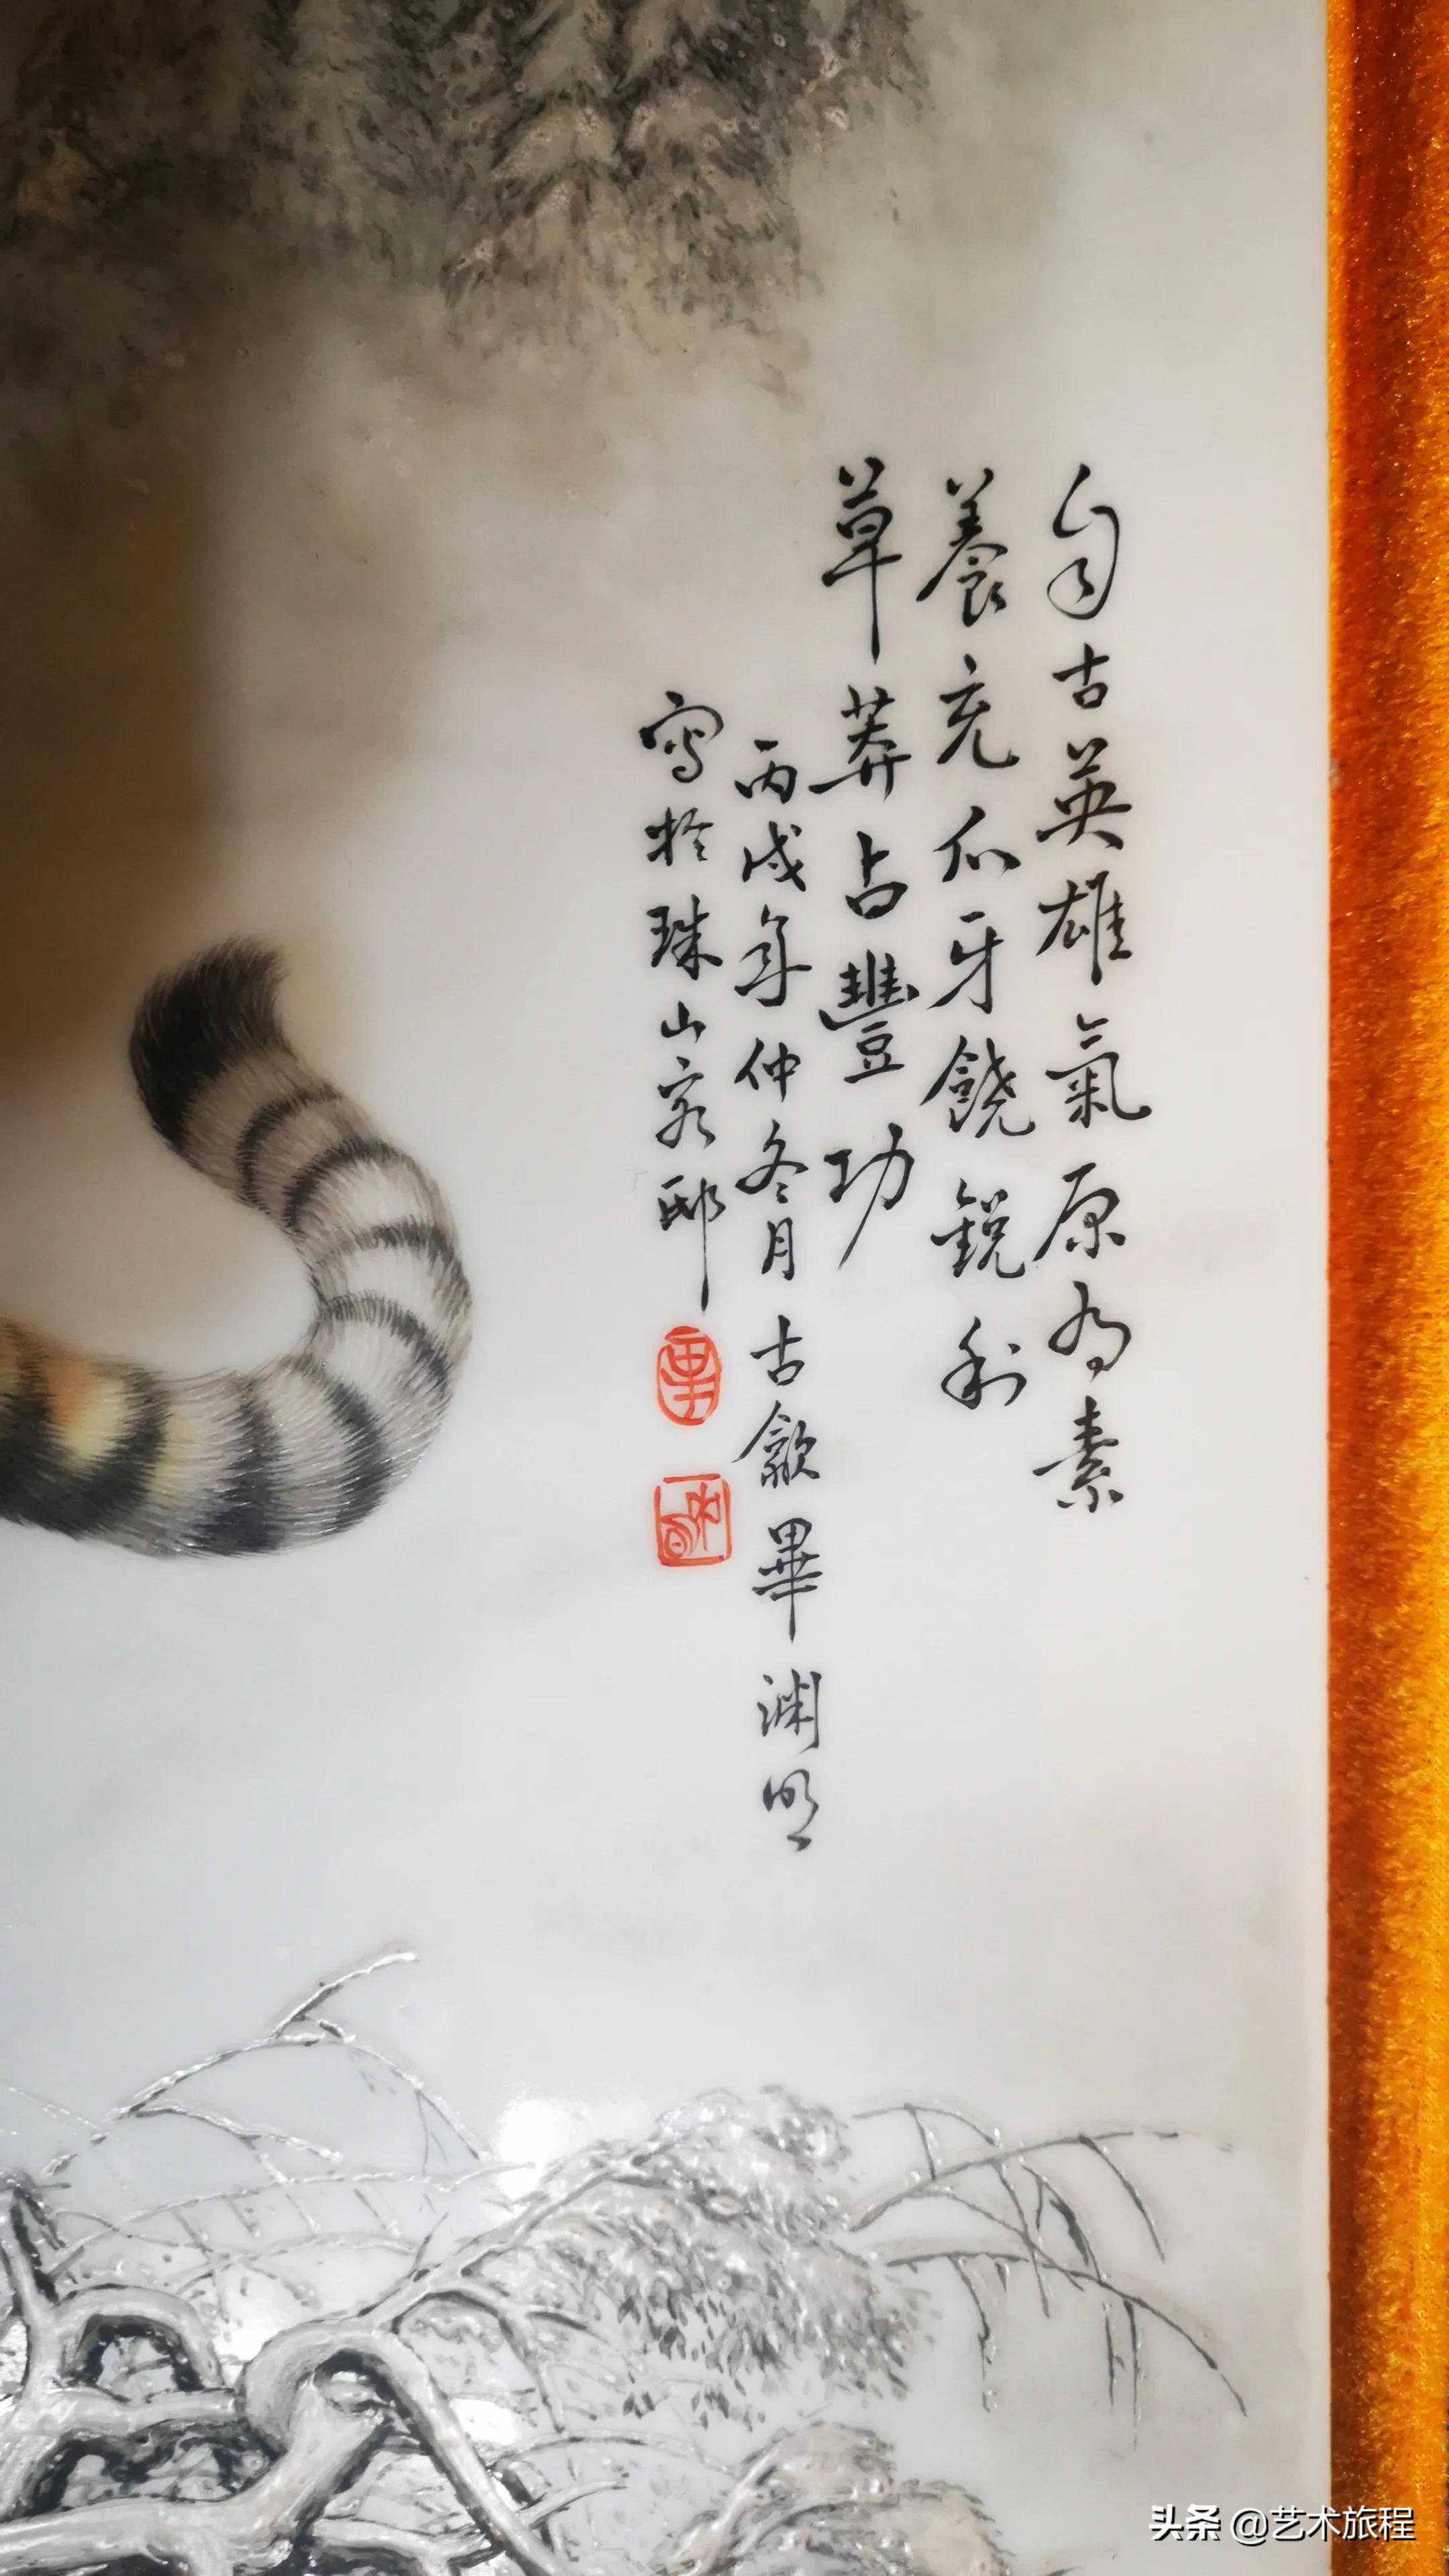 自古英雄氣原為素
養充爪牙饒銳利
草莽占豐功
丙戌年仲冬月古歙畢淵明
寫於珠山客邸
头条 @艺术旅程